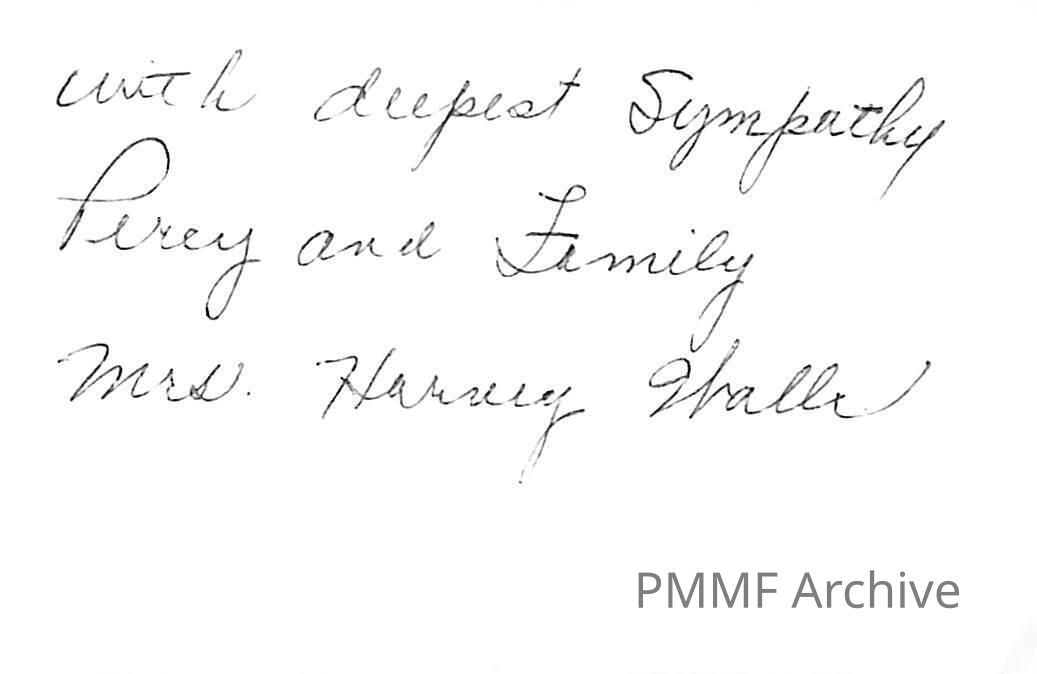 with deepest Sympathy
Percy and Family
Mrs. Harvey
PMMF Archive